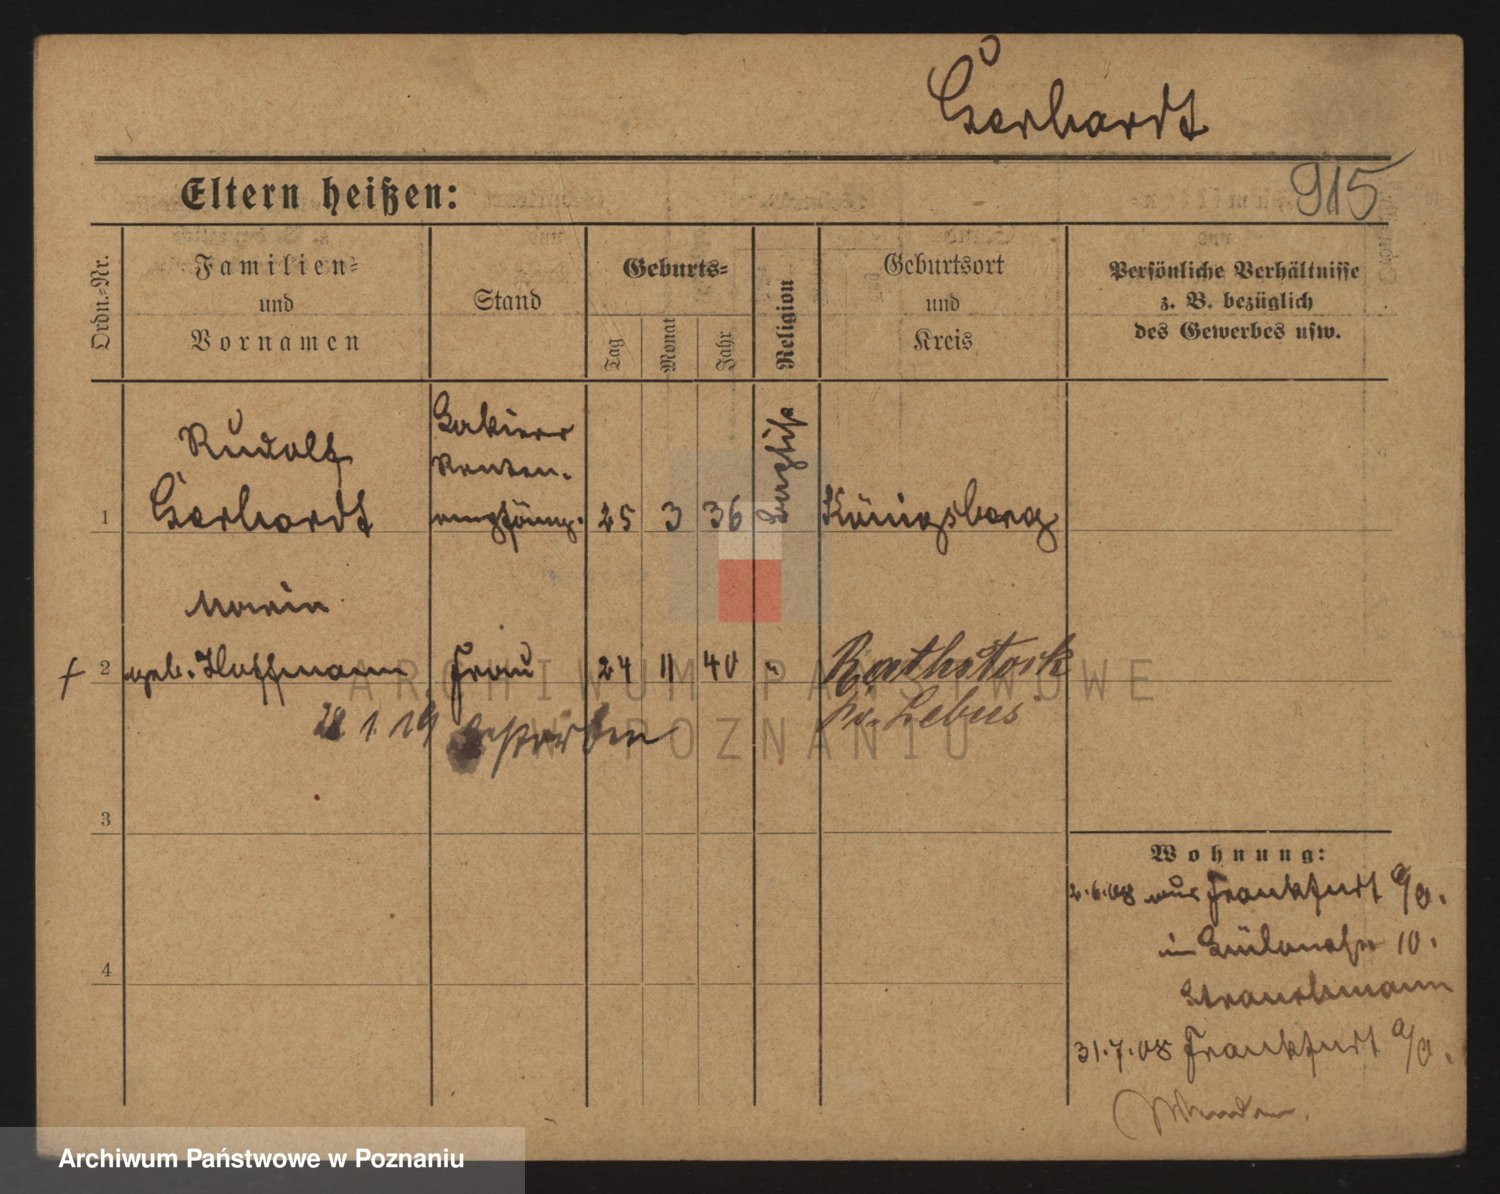 Gerhardt
915
Eltern heißen:
Ordn.=Nr.
Familien=
und
Vornamen
Stand
Geburts=
Tag
Monat
Jahr
Religion
Geburtsort
und
Kreis
Persönliche Verhältnisse
z. B. bezüglich
des Gewerbes usw.
Rudolf
Gerhardt
Lakierer
Renten-
empfäng.
1
25 3 36
Königsberg
Marie
+ 2 geb. Hoffmann Frau 24 11 40
Rathstock
Kr. Lebus
28 1. 19 gestorben
3
4
Wohnung:
2.6.08 aus Frankfurt a/O.
10.
Strauchmann
31.7.08 Frankfurt a/O.
ARCHIWUM PAŃSTWOWE
W POZNANIU
Archiwum Państwowe w Poznaniu